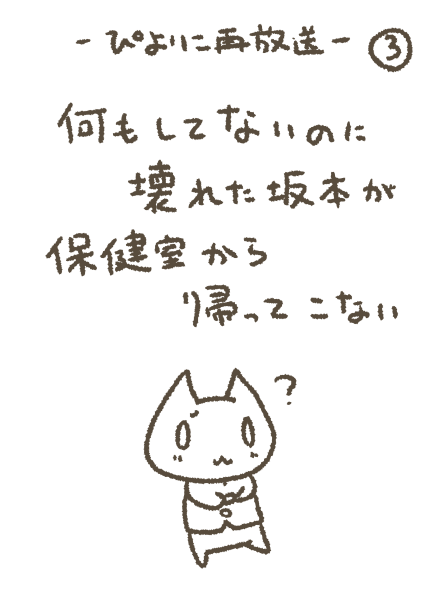 -ぴよりに再放送- ③
何もしてないのに
壊れた坂本が
保健室から
帰ってこない
?